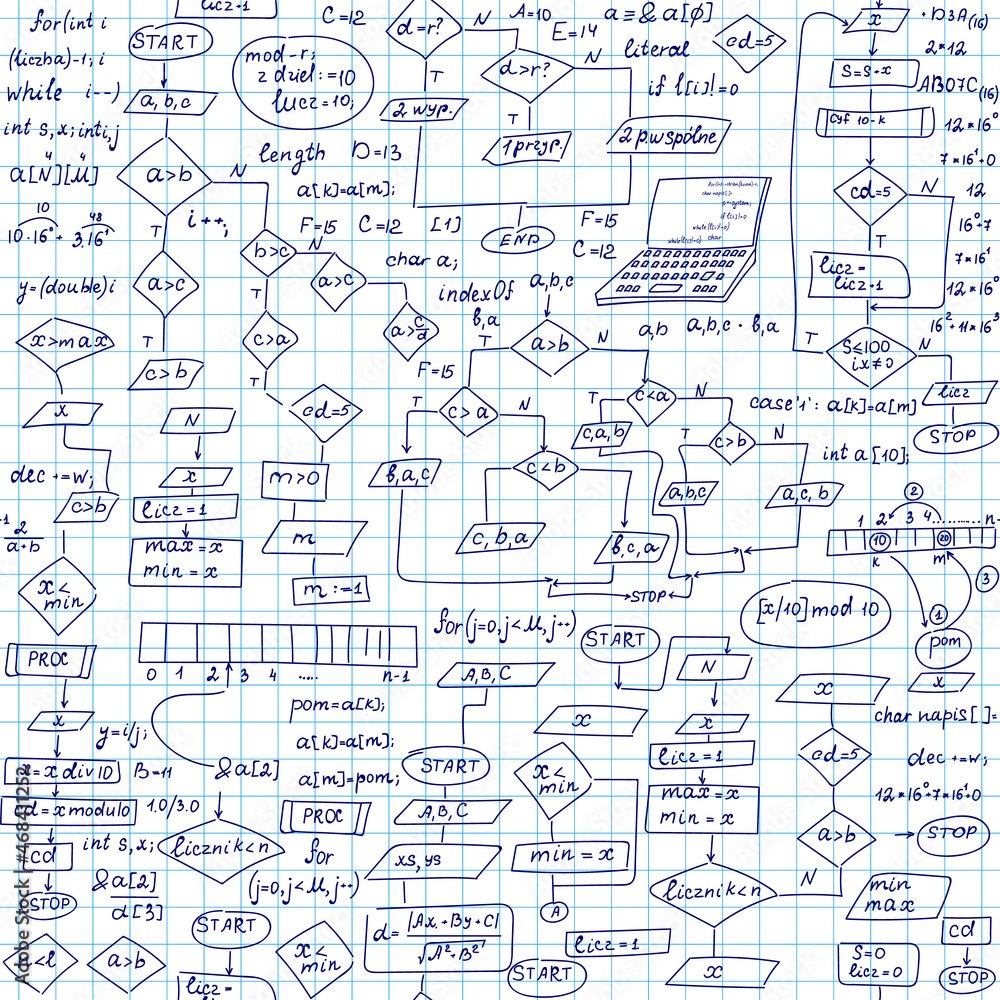 for(int i
(liczba)-1; i
while i--)
int s,x; inti,j
4 4
a[N][M]
10 48
10·16⁰+ 3·16¹
y=(double)i
x>max
x
dec +=w;
c>b
2
a+b
x<
min
PROC
x
y=i/j;
x=x div10
B=11
d=xmodulo
1.0/3.0
cd
int s,x;
STOP
&a[2]
d[3]
<l
a>b
licz+1
START
a,b,c
a>b
N
T
i++,
a>c
T
c>b
b>c
N
T
a>c
c>a
T
a>c/d
cd=5
N
x
licz=1
max=x
min=x
m>0
m
m:=-1
C=12
mod-r;
z dziel:=10
lucz=10;
length D=13
a[k]=a[m];
F=15 C=12 [1]
char a;
d=r?
N
A=10
E=14
T
2 wyp.
d>r?
N
T
1 przyp.
2 p.wspólne
END
a=&a[ϕ]
literal
cd=5
if l[i]!=0
F=15
C=12
char
while(l[i]!=0)
if l[i]!=0
indexOf a,b,c
b,a
a,b
a,b,c · b,a
F=15
a>b
T
N
c>a
T
N
b,a,c
c<b
c,b,a
b,c,a
c<a
T
N
c,a,b
c>b
T
N
a,b,c
a,c,b
STOP
case'1': a[k]=a[m]
int a[10];
x
S=S+x
Cyf 10-k
cd=5
N
T
licz=
licz+1
S≤100
ix≠0
T
N
licz
STOP
·D3A(16)
2*12
AB07C(16)
12*16⁰
7*16¹+0
12
16⁰+7
7*16¹
12*16⁰
16²+11*16³
2
1 2 3 4........... n-
10 20
k m
3
1
pom
x
[x/10]mod 10
0 1 2 3 4 ..... n-1
for(j=0,j<M,j++)
pom=a[k];
a[k]=a[m];
a[m]=pom;
&a[2]
licznik<n
PROC
for
(j=0,j<M,j++)
START
licz=
x<
min
A,B,C
START
A,B,C
xs,ys
d=|Ax+By+C|
√A²+B²
START
N
x
x
licz=1
max=x
min=x
x<
min
min=x
A
licz=1
START
licznik<n
N
x
x
cd=5
a>b
STOP
char napis[]=
dec +=w;
12*16⁰+7*16¹+0
min
max
S=0
licz=0
cd
STOP
Adobe Stock | #468411252